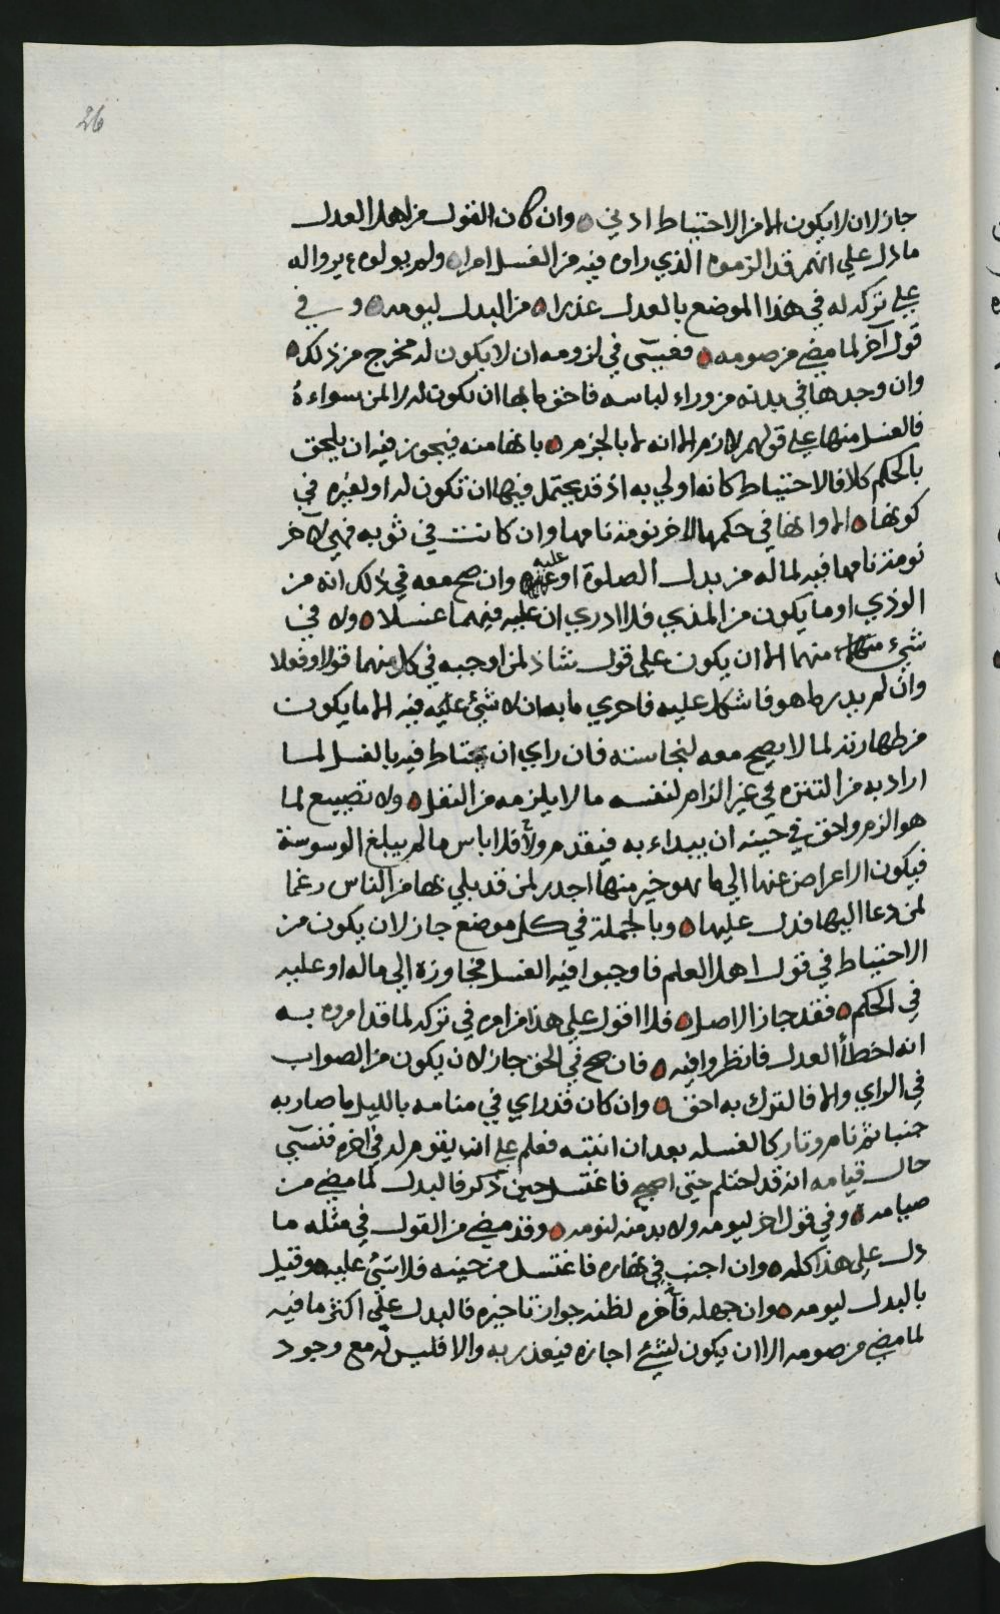 26
جاز لان لا يكون الا من الاحتياط ادنى ه وان كان القول من اهل العدل
ما دل على انهم قد الزموه الذي راوه فيه من الغسل امرا ه ولم يروا له
على تركه له في هذا الموضع بالعدل عذرا ه من البدل ليومه ه و في
قول آخر لما مضى من صومه ه فعسى في لزومه ان لا يكون له مخرج من ذلك ه
وان وجدها في بدنه من وراء لباسه فاحق ما بها ان تكون له لا لمن سواءه
فالغسل منها على قولهم لازم الا انه لا بالجزم ه بانها منه فيجوز فيه ان يلحق
بالحكم كلا فالاحتياط كانه اولى به اذ قد يحتمل فيها ان تكون له او لغيره في
كونها ه الا وانها في حكمها لاخر نومة نامها وان كانت في ثوبه فهي لآخر
نومة نامها فيه لما له من بدل الصلوة او عليه وان صح معه في ذلك انه من
الوذي او ما يكون من المذي فلا ادري ان عليه فيهما غسلا ه ولا في
شيء منهما الا ان يكون على قول شاذ لمن اوجبه في كل منهما قولا وفعلا
وان لم يدر ما هو فاشكل عليه فاحرى ما به ان لا شيء عليه فيه الا ما يكون
من طهارته لما لا يصح معه لنجاسته فان راي ان يحتاط فيه بالغسل لما
اراد به من التنزه في غير الزام لنفسه ما لا يلزمه من النفل ه ولا تضييع لما
هو الزم واحق في حينه ان يبداء به فيقدم ولا فلا باس ما لم يبلغ الوسوسة
فيكون الاعراض عنها الى ما هو خير منها اجدر لمن قد بلي بها من الناس رغما
لمن دعا اليها فدل عليها ه وبالجملة في كل موضع جاز لان يكون من
الاحتياط في قول اهل العلم فاوجبوا فيه الغسل مجاوزة الى ما له او عليه
في الحكم ه فقد جاز الاصل ه فلا اقول على هذا من امره في تركه لما قد امروه به
انه اخطأ العدل فانظروا فيه ه فان صح في الحق جاز لان يكون من الصواب
في الراي والا فالترك به احق ه وان كان قد راي في منامه بالليل ما صار به
جنبا ثم نام وتاركا لغسله بعد ان انتبه فعلم على انه يقوم له في اخره فنسي
حال قيامه انه قد احتلم حتى اصبح فاغتسل حين ذكر فالبدل لما مضى من
صيامه ه وفي قول اخر ليومه ولا بد منه لنومه ه وقد مضى من القول في مثله ما
دل على هذا كله ه وان اجنب في نهاره فاغتسل من حينه فلا شيء عليه ه وقيل
بالبدل ليومه ه وان جهله فآخره لظنه جواز تاخيره فالبدل على اكثر ما فيه
لما مضى من صومه الا ان يكون لشيء اجازه فيعذر به والا فليس له مع وجود